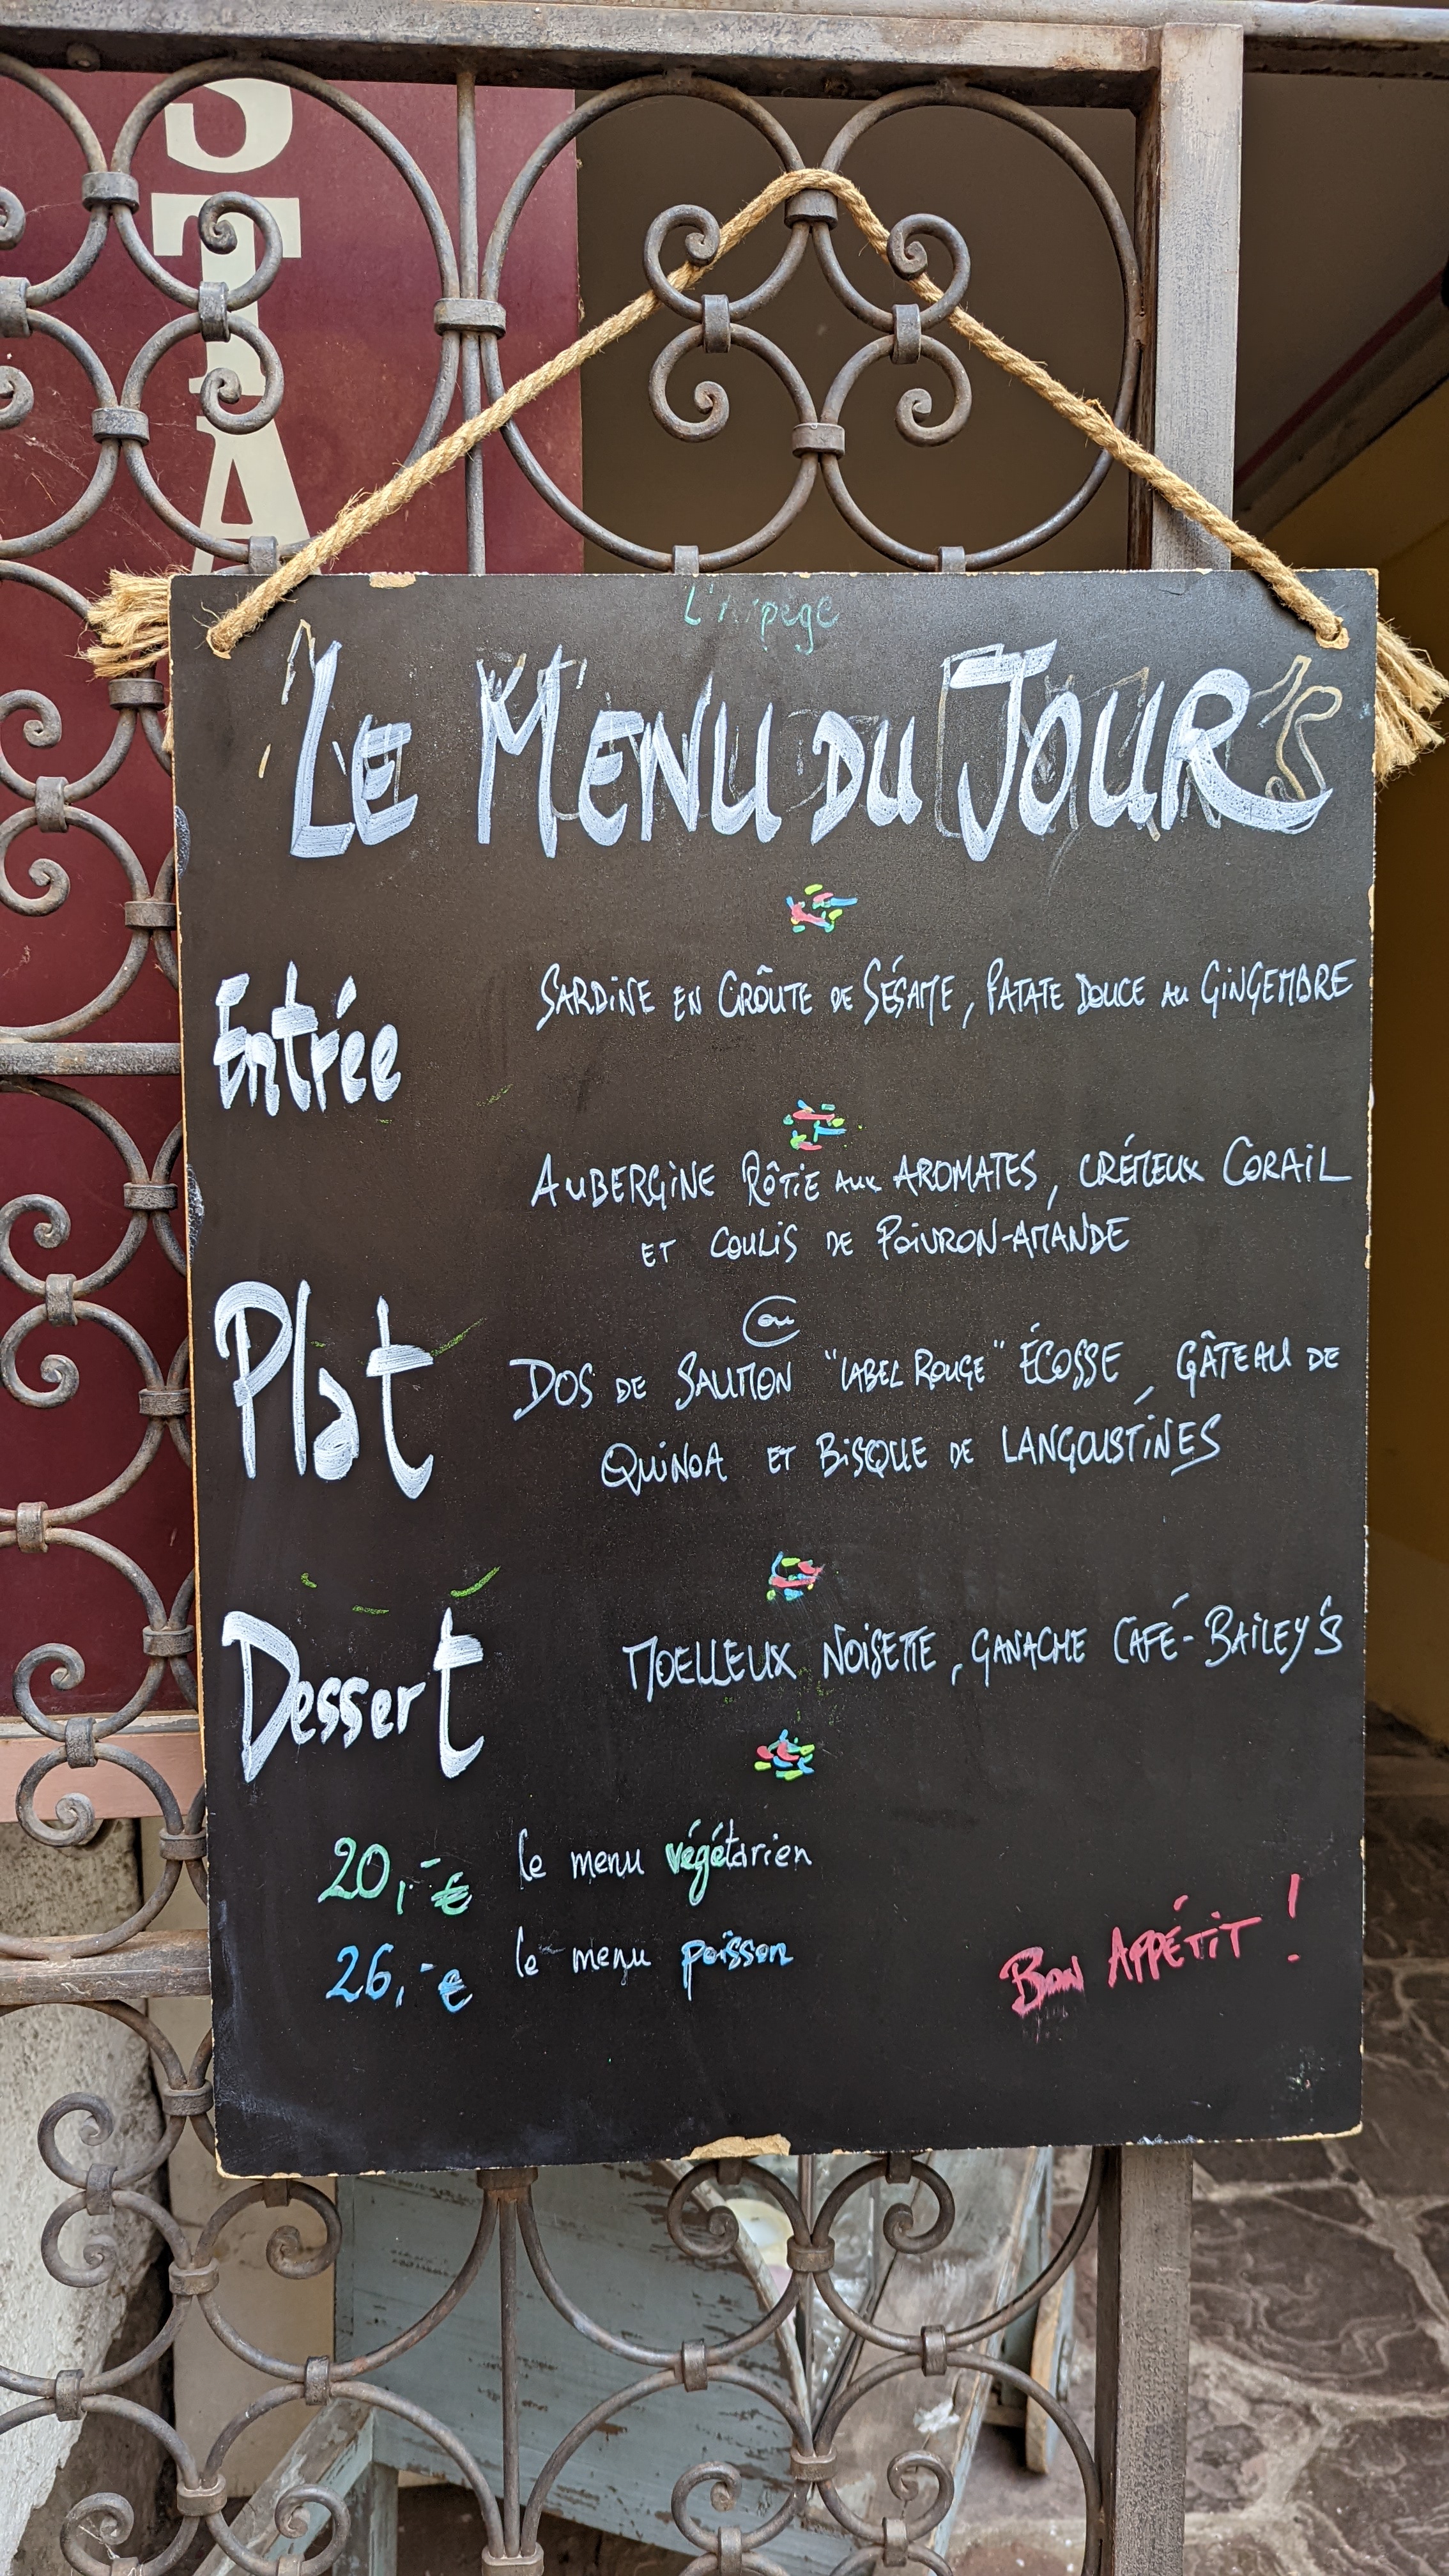 STA
L'Arpège
LE MENU DU JOUR
Entrée
SARDINE EN CROÛTE DE SÉSAME, PATATE DOUCE AU GINGEMBRE
AUBERGINE RÔTIE AUX AROMATES, CRÉMEUX CORAIL
ET COULIS DE POIVRON-AMANDE
Plat
ou
DOS DE SAUMON "LABEL ROUGE" ÉCOSSE, GÂTEAU DE
QUINOA ET BISQUE DE LANGOUSTINES
Dessert
MOELLEUX NOISETTE, GANACHE CAFÉ-BAILEY'S
20,-€ le menu végétarien
26,-€ le menu poisson
BON APPÉTIT !